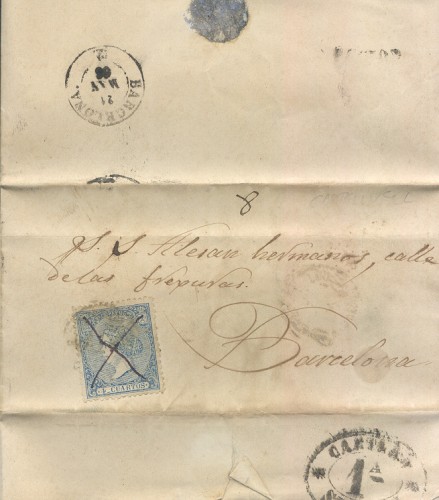 BARCELONA
21
MAY
66
8
S. S. Alesan hermanos, calle
de las freyuras.
Barcelona
4 CUARTOS
CARTERO
1A